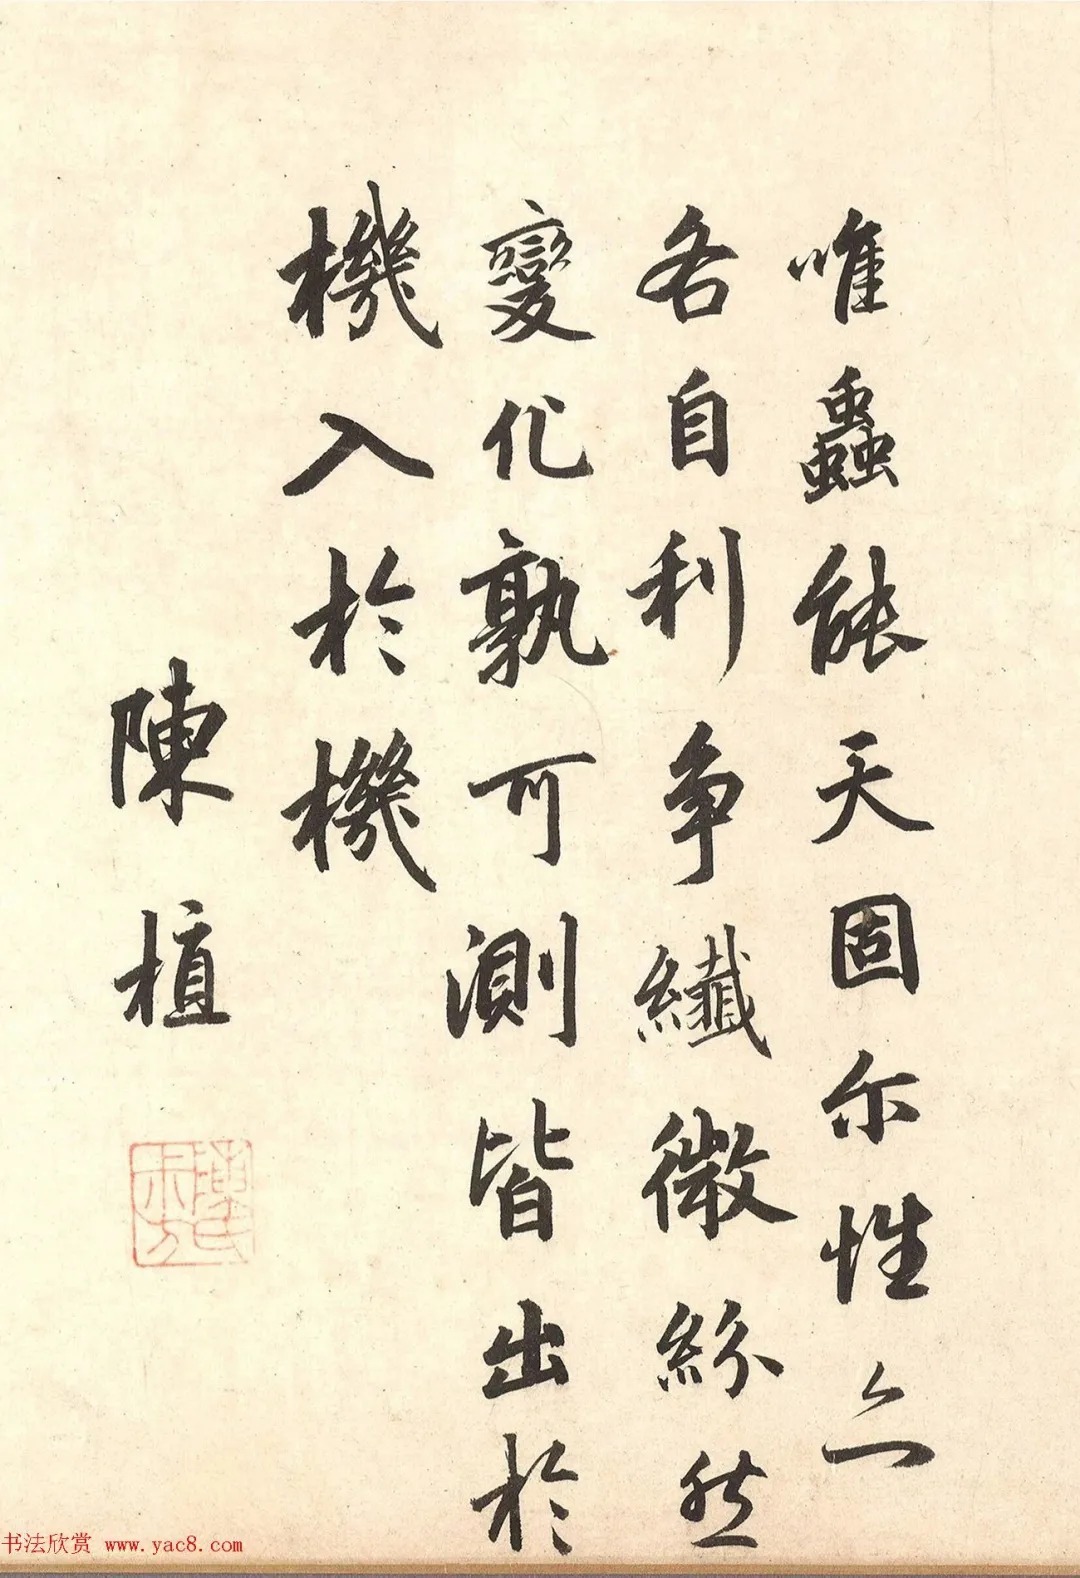 唯蟲能天固尔性亦
各自利争纖微紛然
變化孰可測皆出於
機入於機
陳植
陳氏
叔方
书法欣赏 www.yac8.com